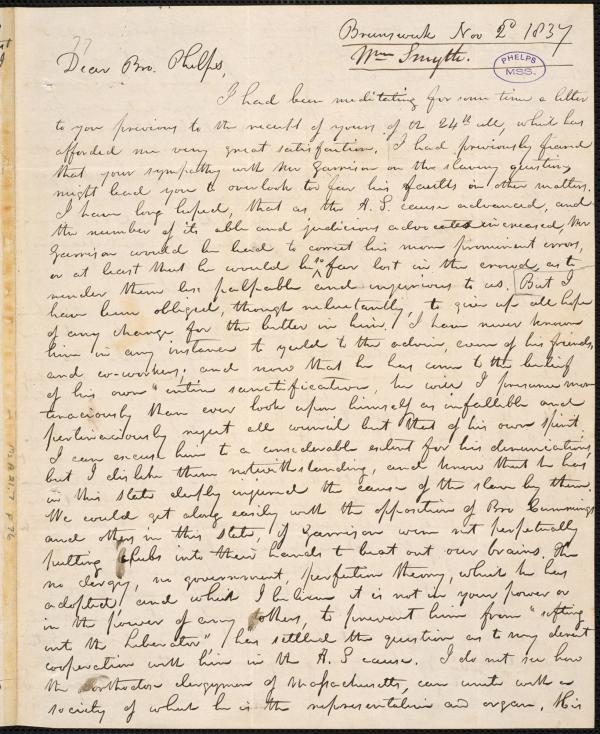 Brunswick Nov 2d 1837
Wm Smyth.
PHELPS
MSS.
77
Dear Bro. Phelps,
I had been meditating for some time a letter
to you previous to the receipt of yours of the 24th ult, which has
afforded me very great satisfaction. I had previously feared
that your sympathy with Mr Garrison on the slavery question,
might lead you to overlook too far his faults in other matters.
I have long hoped, that as the A. S. cause advanced, and
the number of its able and judicious advocates increased, Mr
Garrison would be led to correct his more prominent errors,
or at least that he would be so far lost in the crowd, as to
render them less palpable and injurious to us. But I
have been obliged, though reluctantly, to give up all hope
of any change for the better in him. I have never known
him in any instance to yield to the advice, even of his friends,
and co-workers; and now that he has come to the belief
of his own "entire sanctification, he will I presume more
tenaciously than ever look upon himself as infallible and
pertinaciously reject all council but that of his own spirit.
I can excuse him to a considerable extent for his denunciations,
but I dislike them notwithstanding, and know that he has
in this state deeply injured the cause of the slave by them.
We could get along easily with the opposition of Bro Cummings
and others in this state, if Garrison were not perpetually
putting clubs into their hands to beat out our brains. The
no clergy, no government, perfection theory, which he has
adopted, and which I believe it is not in your power or
in the power of any others, to prevent him from "sifting
into the Liberator" has settled the question as to my direct
cooperation with him in the A. S cause. I do not see how
the orthodox clergymen of Massachusetts, can unite with a
society of which he is the representative and organ. His
Ms. A.21.7 p. 76